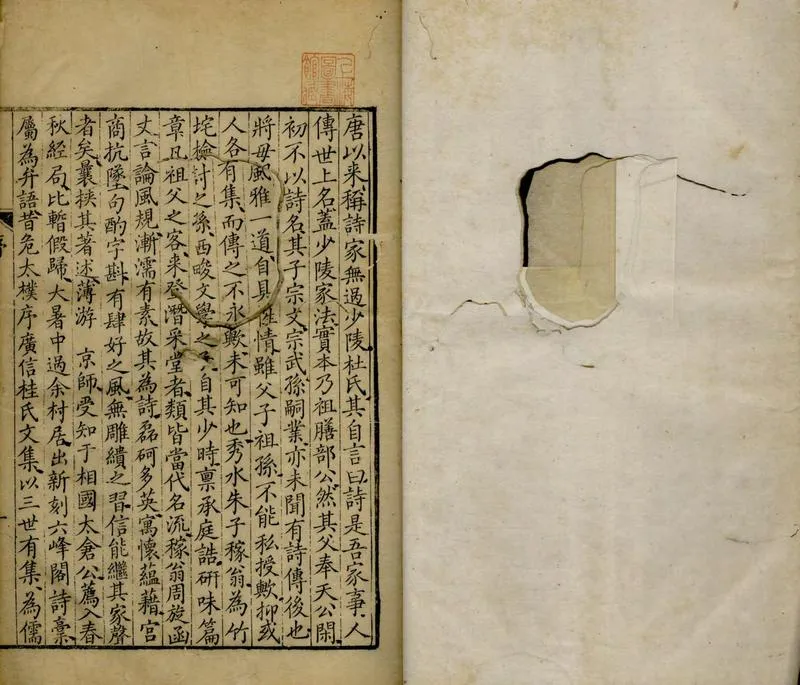 唐以來稱詩家無過少陵杜氏其自言曰詩是吾家事人
傳世上名蓋少陵家法實本乃祖膳部公然其父奉天公閑
初不以詩名其子宗文宗武孫嗣業亦未聞有詩傳後也
將毋風雅一道自具性情雖父子祖孫不能私授歟抑或
人各有集而傳之不永歟未可知也秀水朱子稼翁為竹
垞檢討之孫西畯文學之子自其少時稟承庭誥研味篇
章凡祖父之客來登潛采堂者類皆當代名流稼翁周旋函
丈言論風規漸濡有素故其為詩磊砢多英寓懷蘊藉宮
商抗墜句酌字斟有肆好之風無雕繢之習信能繼其家聲
者矣曩挾其著述薄游 京師受知于相國太倉公薦入春
秋經局比暫假歸大暑中過余村居出新刻六峰閣詩稾
屬為弁語昔危太樸序廣信桂氏文集以三世有集為儒